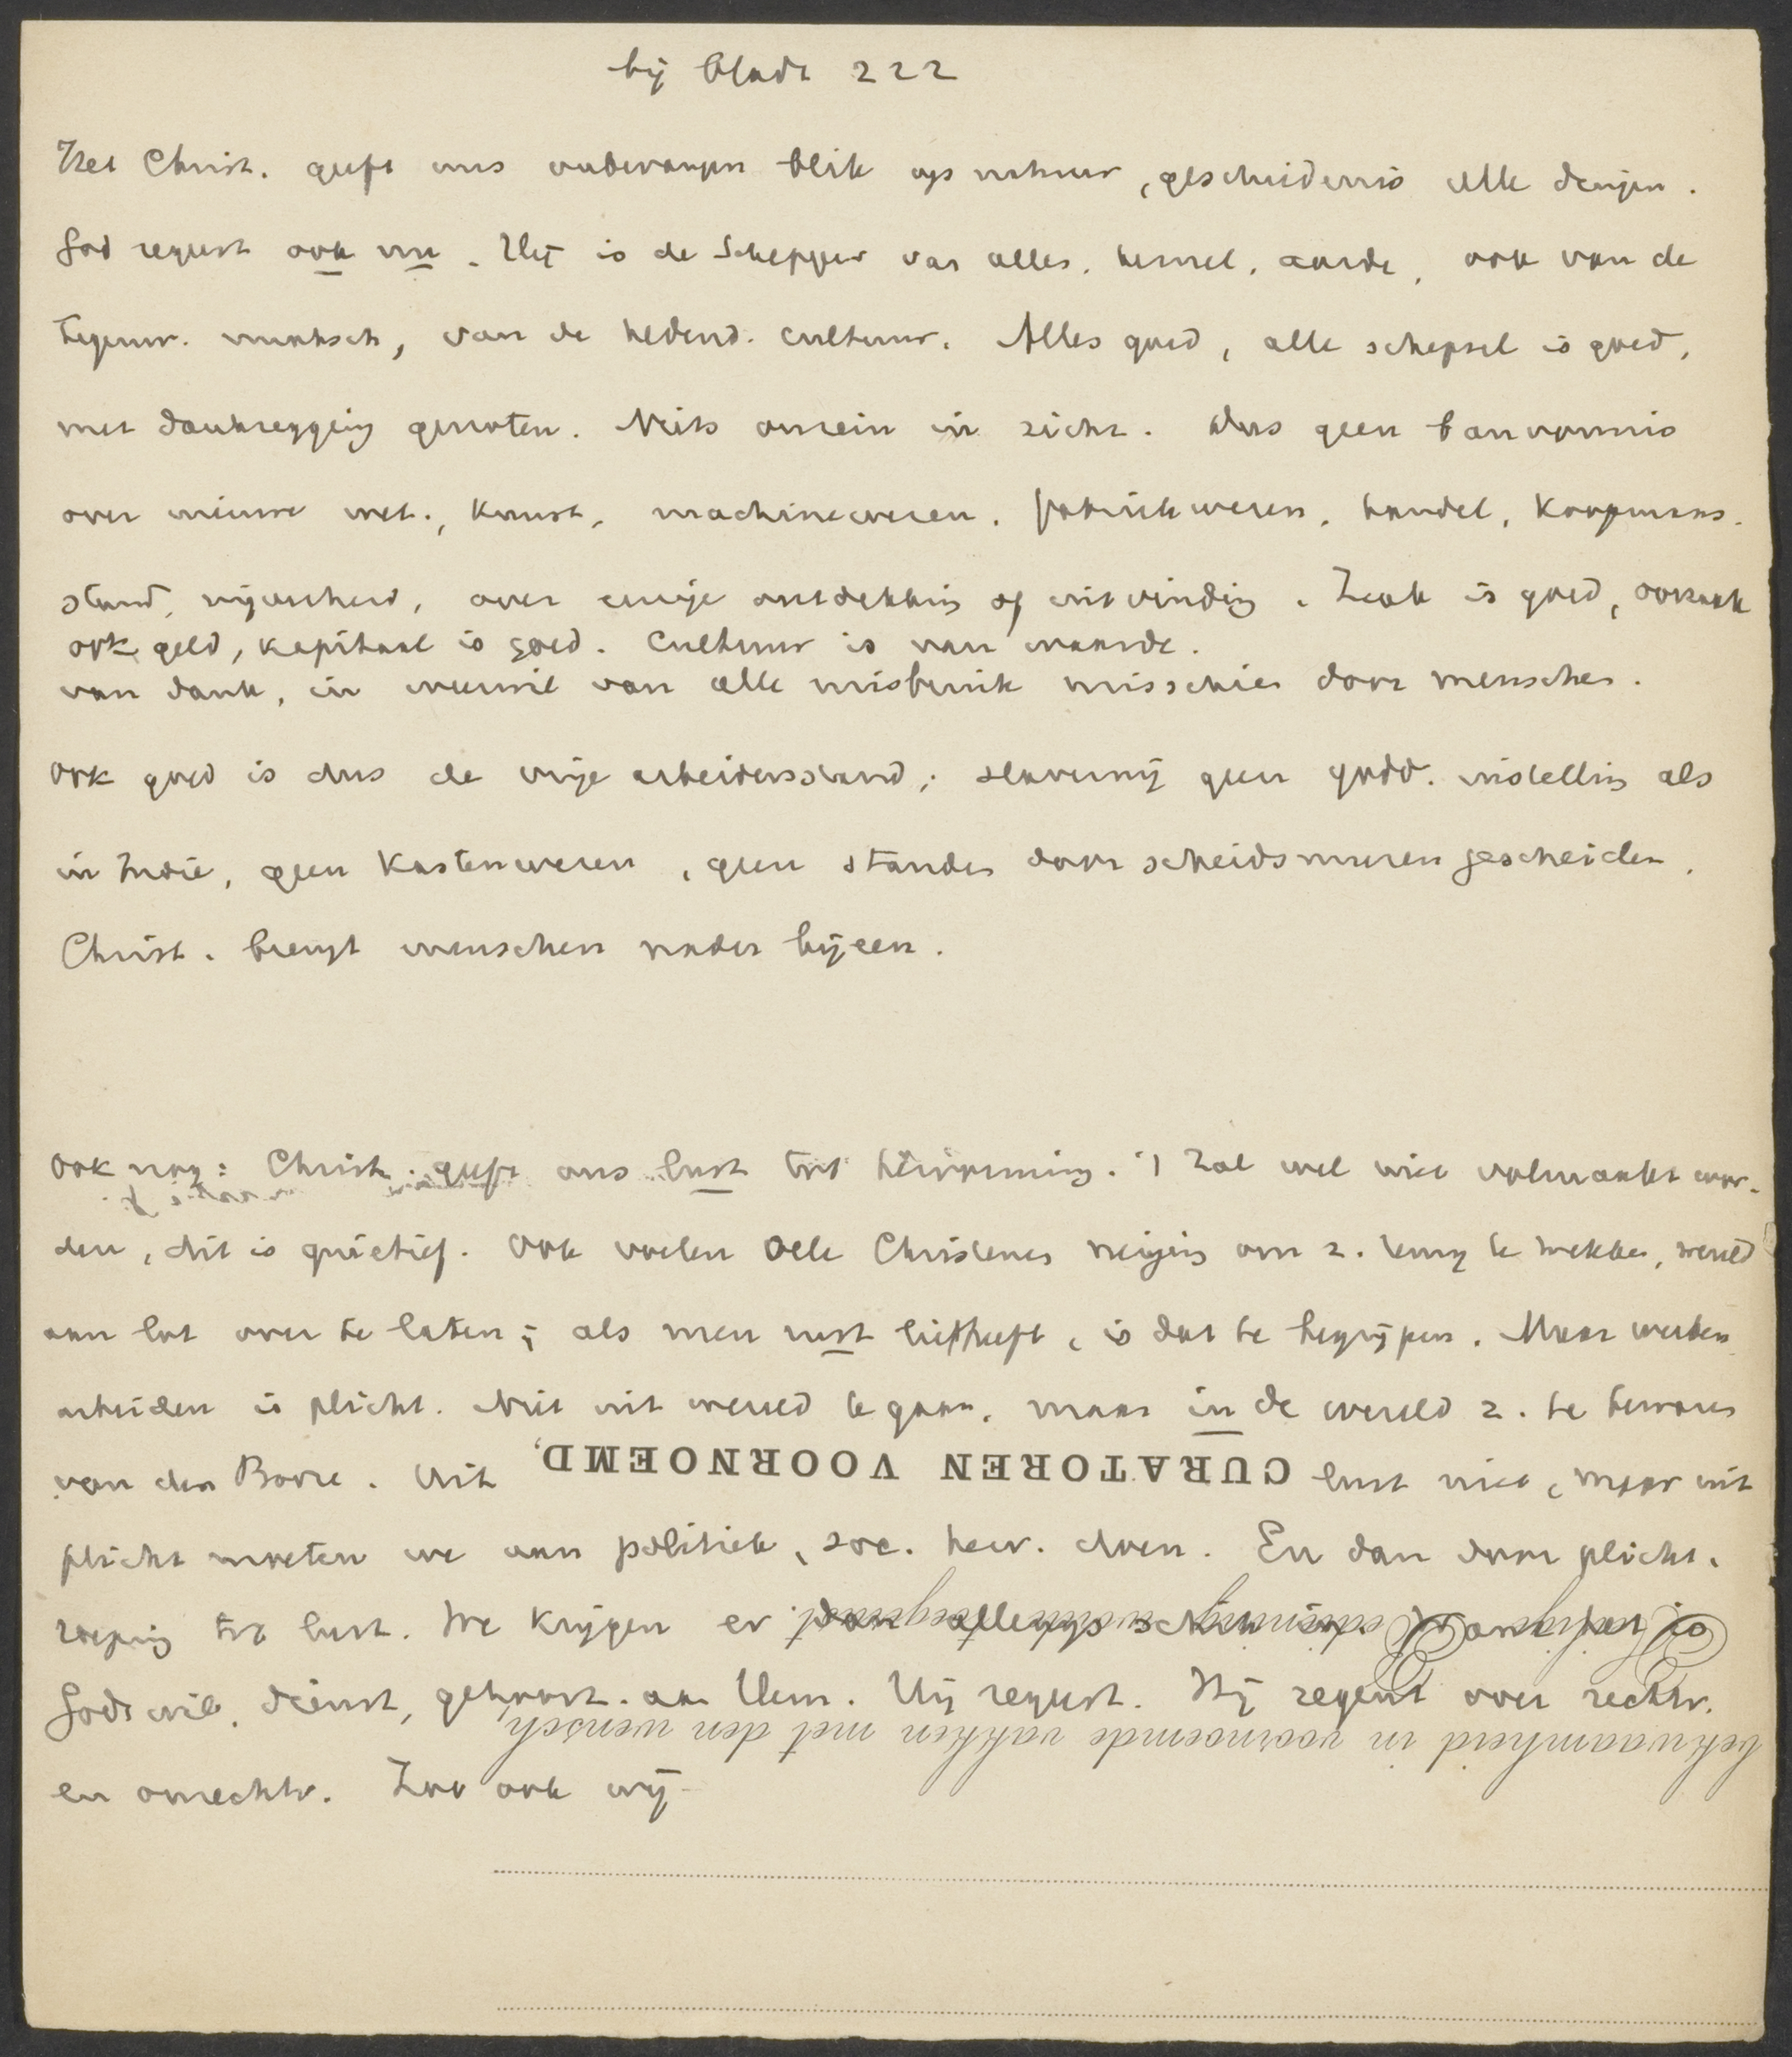 bij bladz 222
Het Christ. geeft ons onbevangen blik op natuur, geschiedenis alle dingen.
God regeert ook nu. Hij is de Schepper van alles, hemel, aarde, ook van de
tegenw. maatsch, van de hedend. cultuur. Alles goed, alle schepsel is goed,
met dankzegging genoten. Niets onrein in zichz. Dus geen banvonnis
over nieuwe wet., kunst, machinewezen, fabriekwezen, handel, koopmans-
stand, nijverheid, over enige ontdekking of uitvinding. Zaak is goed, oorzaak
ook geld, kapitaal is goed. Cultuur is van waarde.
van dank, in weerwil van alle misbruik misschien door menschen.
Ook goed is dus de vrije arbeidersstand; slavernij geen godd. instelling als
in Indië, geen kastenwezen, geen standen door scheidsmuren gescheiden.
Christ. brengt menschen nader bijeen.
Ook nog: Christ. geeft ons lust tot hervorming. 't Zal wel niet volmaakt wor-
den, dit is quietief. Ook voelen vele Christenen neiging om z. terug te trekken, wereld
aan lot over te laten; als men rust liefheeft, is dat te begrijpen. Maar werken
arbeiden is plicht. Niet uit wereld te gaan, maar in de wereld z. te bewaren
van den Booze. Uit lust niet, maar uit
CURATOREN VOORNOEMD,
plicht moeten we aan politiek, soc. herv. doen. En dan door plicht,
roeping tot lust. We krijgen er dan allengs schik in. Want het is
Gods wil, dienst, gehoorz. aan Hem. Hij regeert. Hij regent over rechtv.
bekwaamheid in voornoemde vakken met den wensch,
en onrechtv. Zoo ook wij.